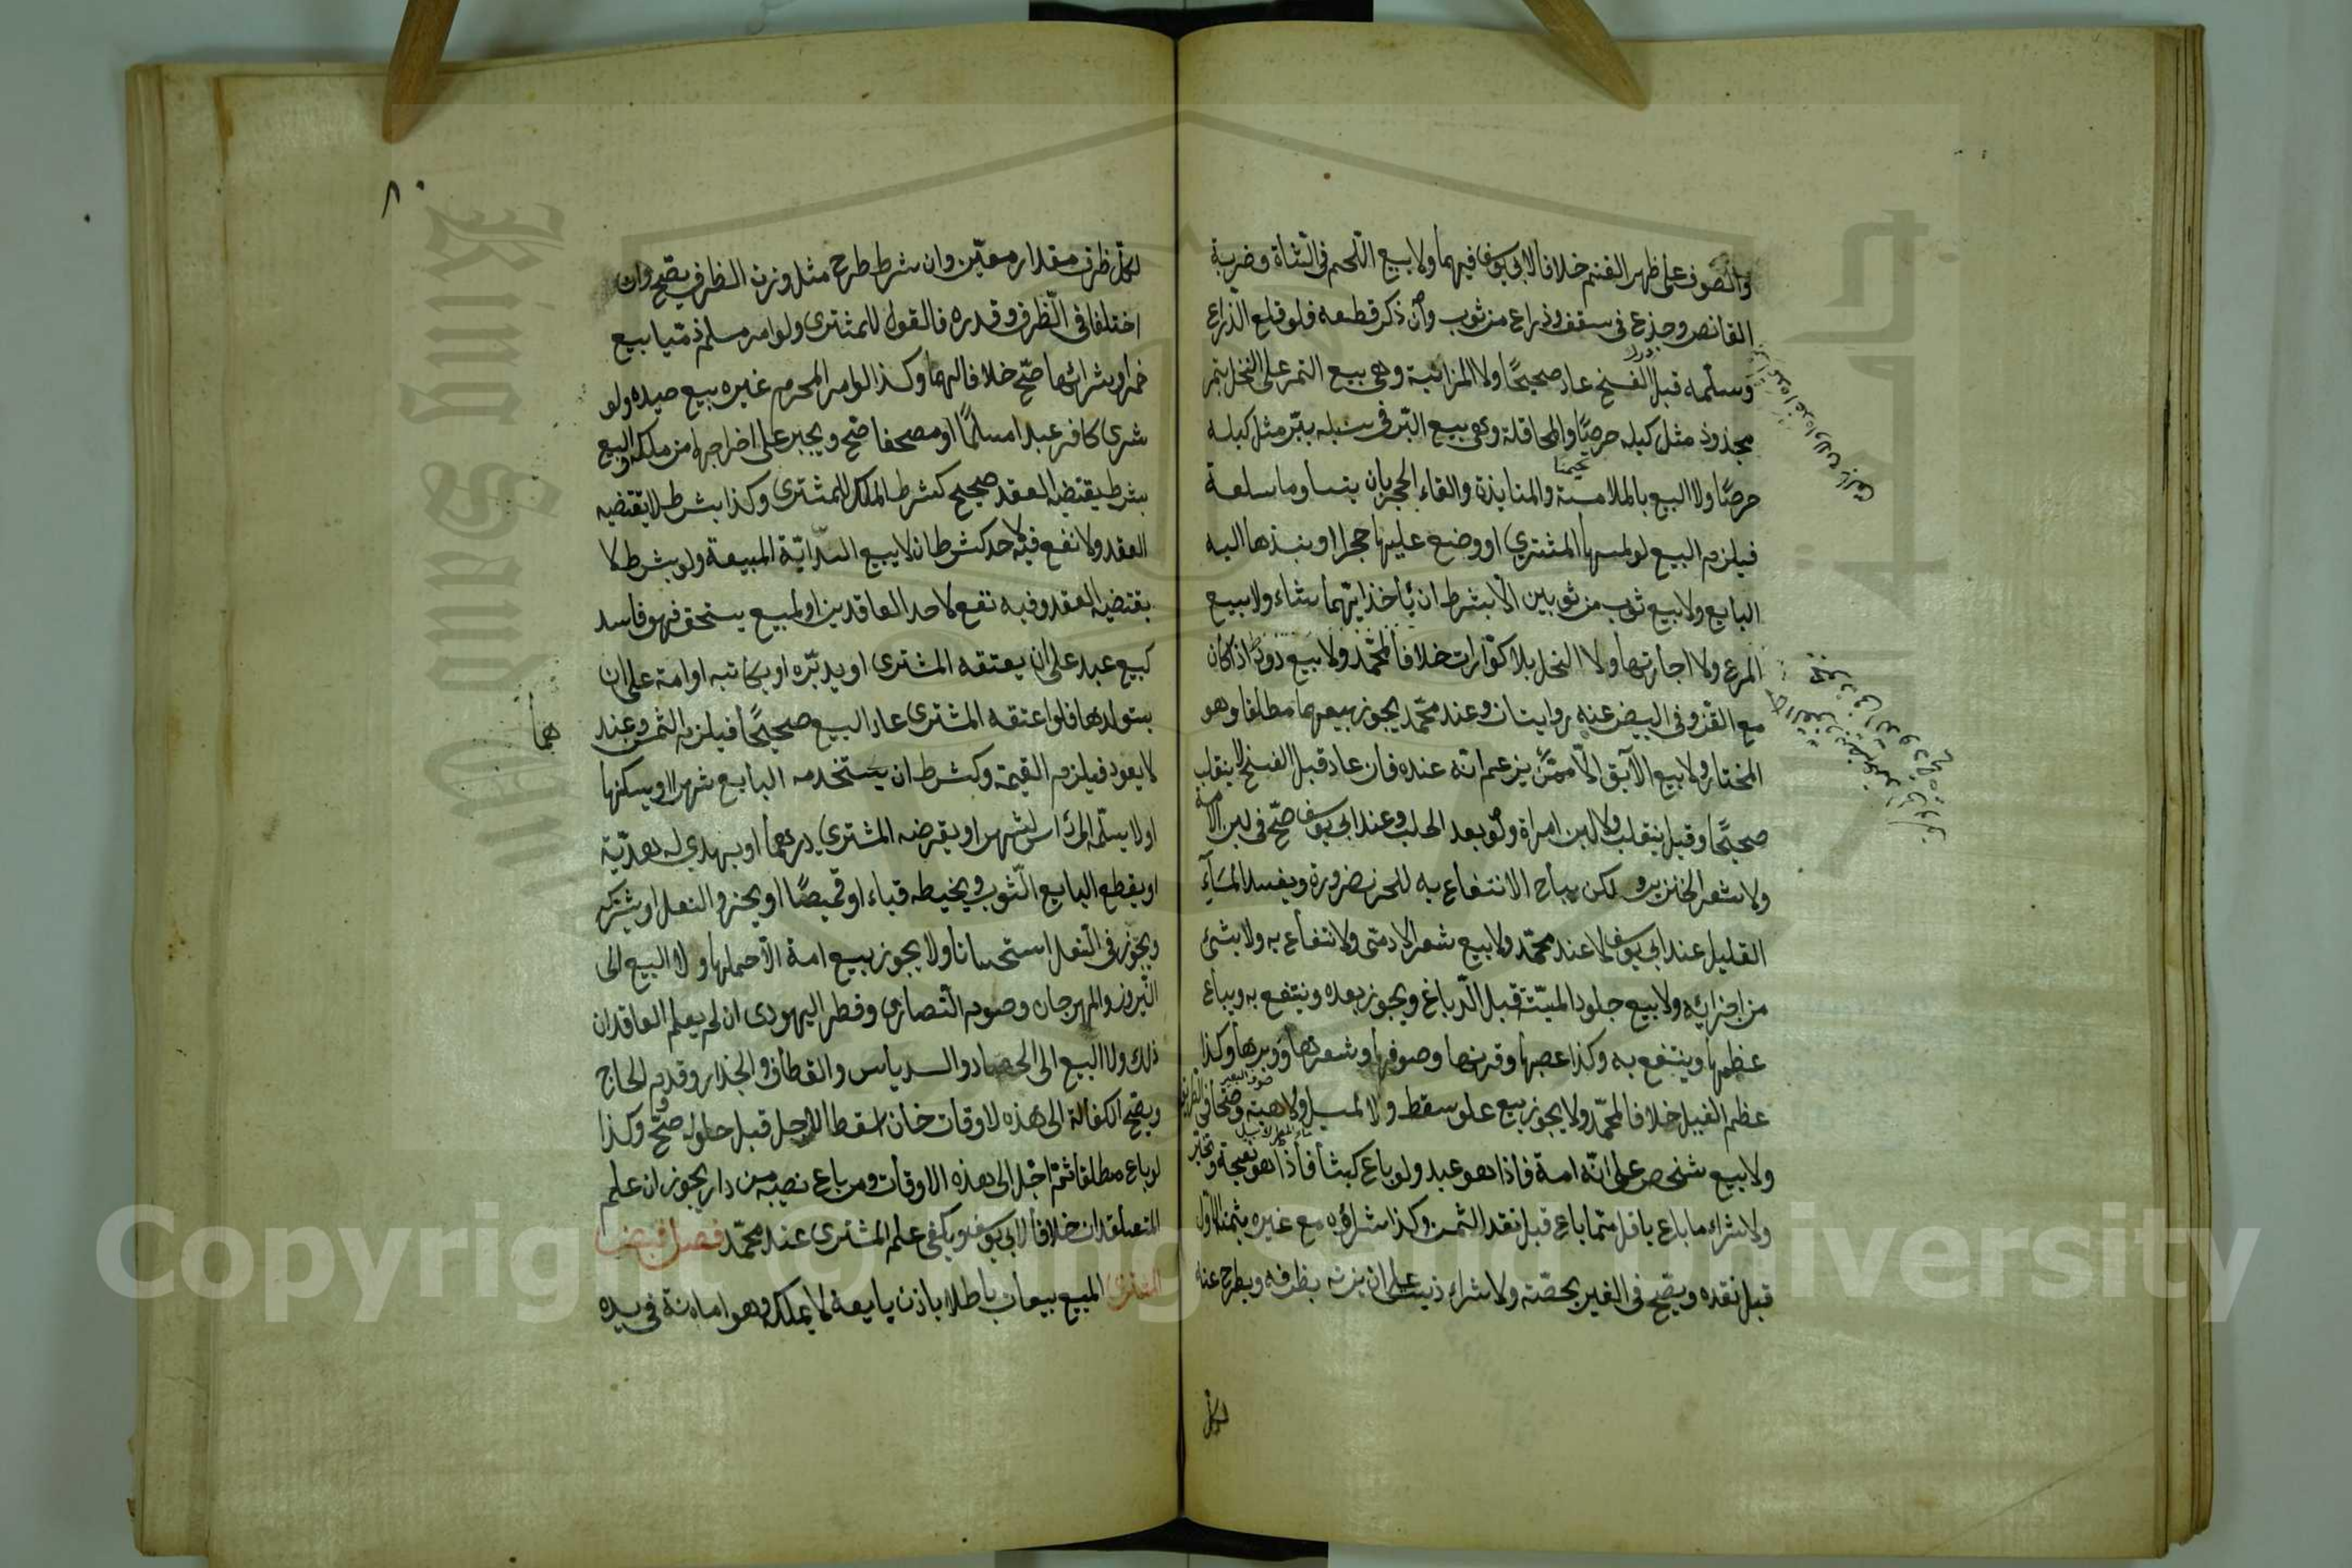 والصوف على ظهر الغنم خلافا لابي يوسف فيهما ولا بيع اللحم في الشاة وضربة
القانص وجذع في سقف وذراع من ثوب وان ذكر قطعه فلو قلع الذراع
وسلمه قبل الفسخ عاد صحيحًا ولا المزابنة وهي بيع التمر على النخل بتمر
مجذوذ مثل كيله خرصًا والمحاقلة وهي بيع البرّ في سنبله ببرّ مثل كيله
خرصًا ولا البيع بالملامسة والمنابذة والقاء الحجر بان يتساوما سلعة
فيلزم البيع لو لمسها المشتري او وضع عليها حجرا او ينبذها اليه
البايع ولا بيع ثوب من ثوبين الّا بشرط ان يأخذ ايّهما شاء ولا بيع
المرعى ولا اجارتها ولا النحل بلا كوّارات خلافا لمحمّد ولا بيع دود القز الا اذا كان
مع القز وفي البيض عنه روايتان وعند محمّد يجوز بيعهما مطلقا وهو
المختار ولا بيع الآبق الّا ممّن يزعم انّه عنده فان عاد قبل الفسخ لا ينقلب
صحيحًا وقيل ينقلب ولا لبن امراة ولو بعد الحلب وعند ابي يوسف صحّ في لبن الامة
ولا شعر الخنزير ولكن يباح الانتفاع به للخرز ضرورة ويفسد المآء
القليل عند ابي يوسف لا عند محمّد ولا بيع شعر الادمي ولا انتفاع به ولا بشئ
من اجزائه ولا بيع جلود الميتة قبل الدّباغ ويجوز بعده وينتفع به ويباع
عظمها وينتفع به وكذا عصبها وقرنها وصوفها وشعرها ووبرها وكذا
عظم الفيل خلافا لمحمّد ولا يجوز بيع علو سقط ولا المسيل ولا هبته وصحا في الطريق
ولا بيع شخص على انّه امة فاذا هو عبد ولو باع كبشا فاذا هو نعجة
ولا شراء ما باع باقل ممّا باع قبل نقد الثمن وكذا شراؤه مع غيره بثمنه الاول
قبل نقده ويصحّ في الغير بحصّته ولا شراء زيت على ان يزنه بظرفه ويطرح عنه
لكل
لكل ظرف مقدار معيّن وان شرط طرح مثل وزن الظرف يصح وان
اختلفا في الظرف وقدره فالقول للمشتري ولو امر مسلم ذمّيا ببيع
خمر او شرائها صحّ خلافا لهما وكذا لو امر المحرم غيره ببيع صيده ولو
شرى كافر عبدا مسلمًا او مصحفا صحّ ويجبر على اخراجها من ملكه والبيع
بشرط يقتضيه العقد صحيح كشرط الملك للمشتري وكذا بشرط لا يقتضيه
العقد ولا نفع فيه لاحد كشرط ان لا يبيع الدابّة المبيعة ولو بشرط لا
يقتضيه العقد وفيه نفع لاحد العاقدين او لمبيع يستحق فهو فاسد
كبيع عبد على ان يعتقه المشتري او يدبّره او يكاتبه او امة على ان
يستولدها فلو اعتقه المشتري عاد البيع صحيحًا فيلزمه الثمن وعند
هما
لا يعود فيلزم القيمة وكشرط ان يستخدمه البايع شهرا او يسكنها
او لا يسلّمه الى راس الشهر او يقرضه المشتري درهما او يهدي له هديّة
او يقطع البايع الثوب ويخيطه قباء او قميصًا او يحذو النعل او يشركه
ويجوز في النعل استحسانا ولا يجوز بيع امة الّا حملها ولا البيع الى
النيروز والمهرجان وصوم النصارى وفطر اليهودى ان لم يعلم العاقدان
ذلك ولا البيع الى الحصاد والدياس والقطاف والجذار وقدوم الحاج
ويصح الكفالة الى هذه لاوقات فان اسقط الاجل قبل حلوله صحّ وكذا
لو باع مطلقا ثمّ اجّل الى هذه الاوقات ومن باع نصيبه من دار يجوز ان علم
المتعاقدان خلافا لابي يوسف ويكفي علم المشتري عند محمّد فصل قبض
المشتري المبيع بيعا باطلا باذن بايعه لا يملكه وهو امانة في يده